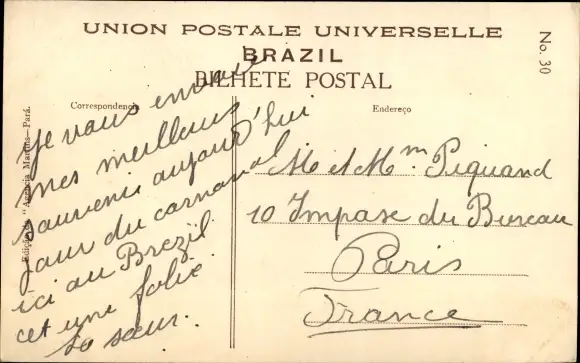 UNION POSTALE UNIVERSELLE
BRAZIL
BILHETE POSTAL
No. 30
Correspondencia
Endereço
Edição da "Agencia Martins-Pará.
Je vous envoie
mes meilleurs
souvenir aujourd'hui
jour du carnaval
ici au Brezil
cet une folie.
La sœur.
M et Mm Piquand
10 Impase du Bureau
Paris
France